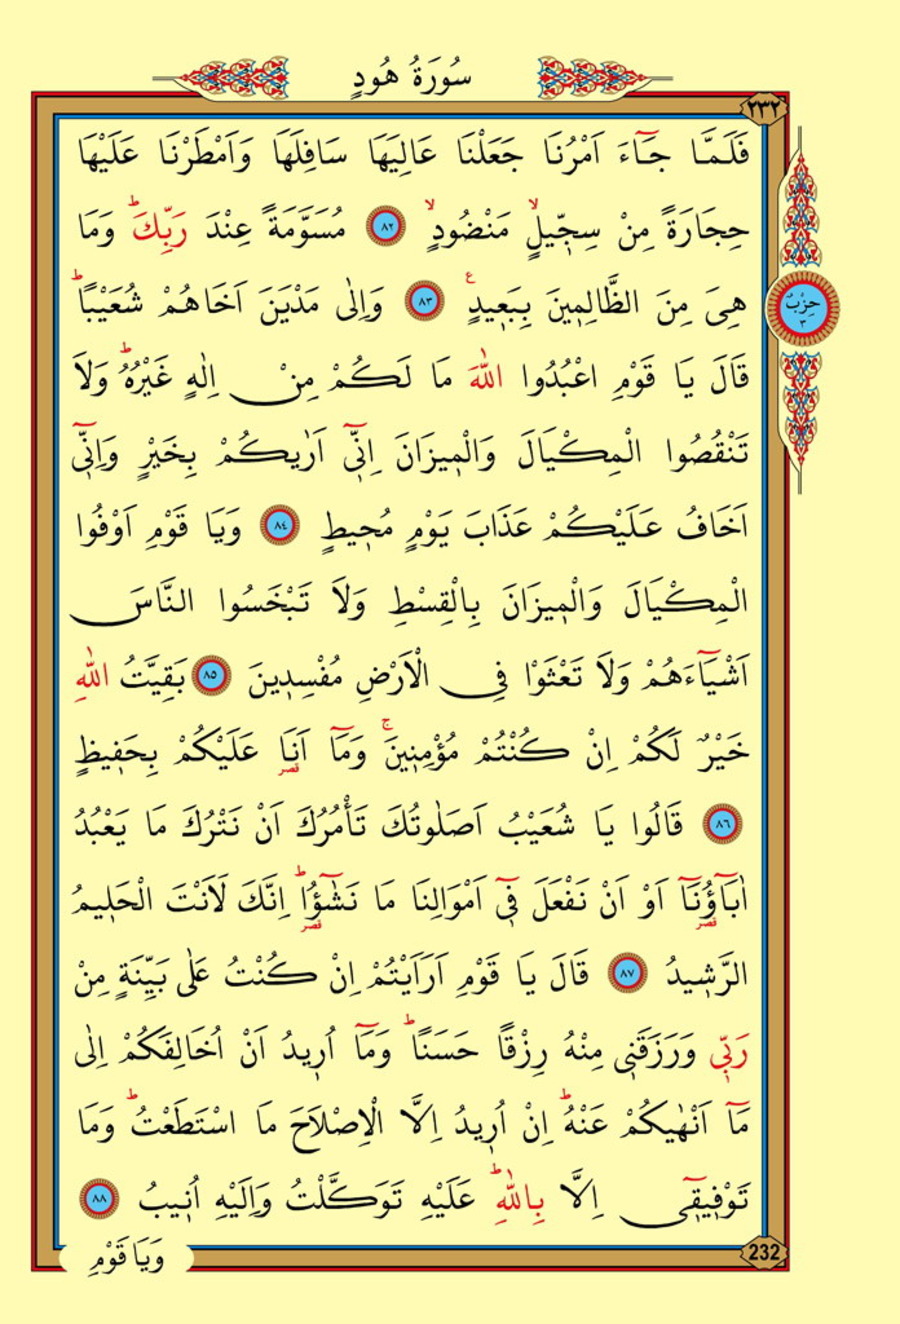 سُورَةُ هُودٍ
٢٣٢
فَلَمَّا جَٓاءَ اَمْرُنَا جَعَلْنَا عَالِيَهَا سَافِلَهَا وَاَمْطَرْنَا عَلَيْهَا
حِجَارَةً مِنْ سِجّ۪يلٍۙ مَنْضُودٍۙ ﴿٨٢﴾ مُسَوَّمَةً عِنْدَ رَبِّكَۜ وَمَا
هِيَ مِنَ الظَّالِم۪ينَ بِبَع۪يدٍ۟ ﴿٨٣﴾ وَاِلٰى مَدْيَنَ اَخَاهُمْ شُعَيْبًاۜ
حِزْبٌ
٣
قَالَ يَا قَوْمِ اعْبُدُوا اللّٰهَ مَا لَكُمْ مِنْ اِلٰهٍ غَيْرُهُۜ وَلَا
تَنْقُصُوا الْمِكْيَالَ وَالْم۪يزَانَ اِنّ۪ٓي اَرٰيكُمْ بِخَيْرٍ وَاِنّ۪ٓي
اَخَافُ عَلَيْكُمْ عَذَابَ يَوْمٍ مُح۪يطٍ ﴿٨٤﴾ وَيَا قَوْمِ اَوْفُوا
الْمِكْيَالَ وَالْم۪يزَانَ بِالْقِسْطِ وَلَا تَبْخَسُوا النَّاسَ
اَشْيَٓاءَهُمْ وَلَا تَعْثَوْا فِي الْاَرْضِ مُفْسِد۪ينَ ﴿٨٥﴾ بَقِيَّتُ اللّٰهِ
خَيْرٌ لَكُمْ اِنْ كُنْتُمْ مُؤْمِن۪ينَۚ وَمَٓا اَنَا۬ عَلَيْكُمْ بِحَف۪يظٍ
﴿٨٦﴾ قَالُوا يَا شُعَيْبُ اَصَلٰوتُكَ تَأْمُرُكَ اَنْ نَتْرُكَ مَا يَعْبُدُ
اٰبَٓاؤُ۬نَٓا اَوْ اَنْ نَفْعَلَ ف۪ٓي اَمْوَالِنَا مَا نَشٰٓؤُ۬اۜ اِنَّكَ لَاَنْتَ الْحَل۪يمُ
الرَّش۪يدُ ﴿٨٧﴾ قَالَ يَا قَوْمِ اَرَاَيْتُمْ اِنْ كُنْتُ عَلٰى بَيِّنَةٍ مِنْ
رَبّ۪ي وَرَزَقَن۪ي مِنْهُ رِزْقًا حَسَنًاۜ وَمَٓا اُر۪يدُ اَنْ اُخَالِفَكُمْ اِلٰى
مَٓا اَنْهٰيكُمْ عَنْهُۜ اِنْ اُر۪يدُ اِلَّا الْاِصْلَاحَ مَا اسْتَطَعْتُۜ وَمَا
تَوْف۪يق۪ٓي اِلَّا بِاللّٰهِۜ عَلَيْهِ تَوَكَّلْتُ وَاِلَيْهِ اُن۪يبُ ﴿٨٨﴾
232
وَيَا قَوْمِ